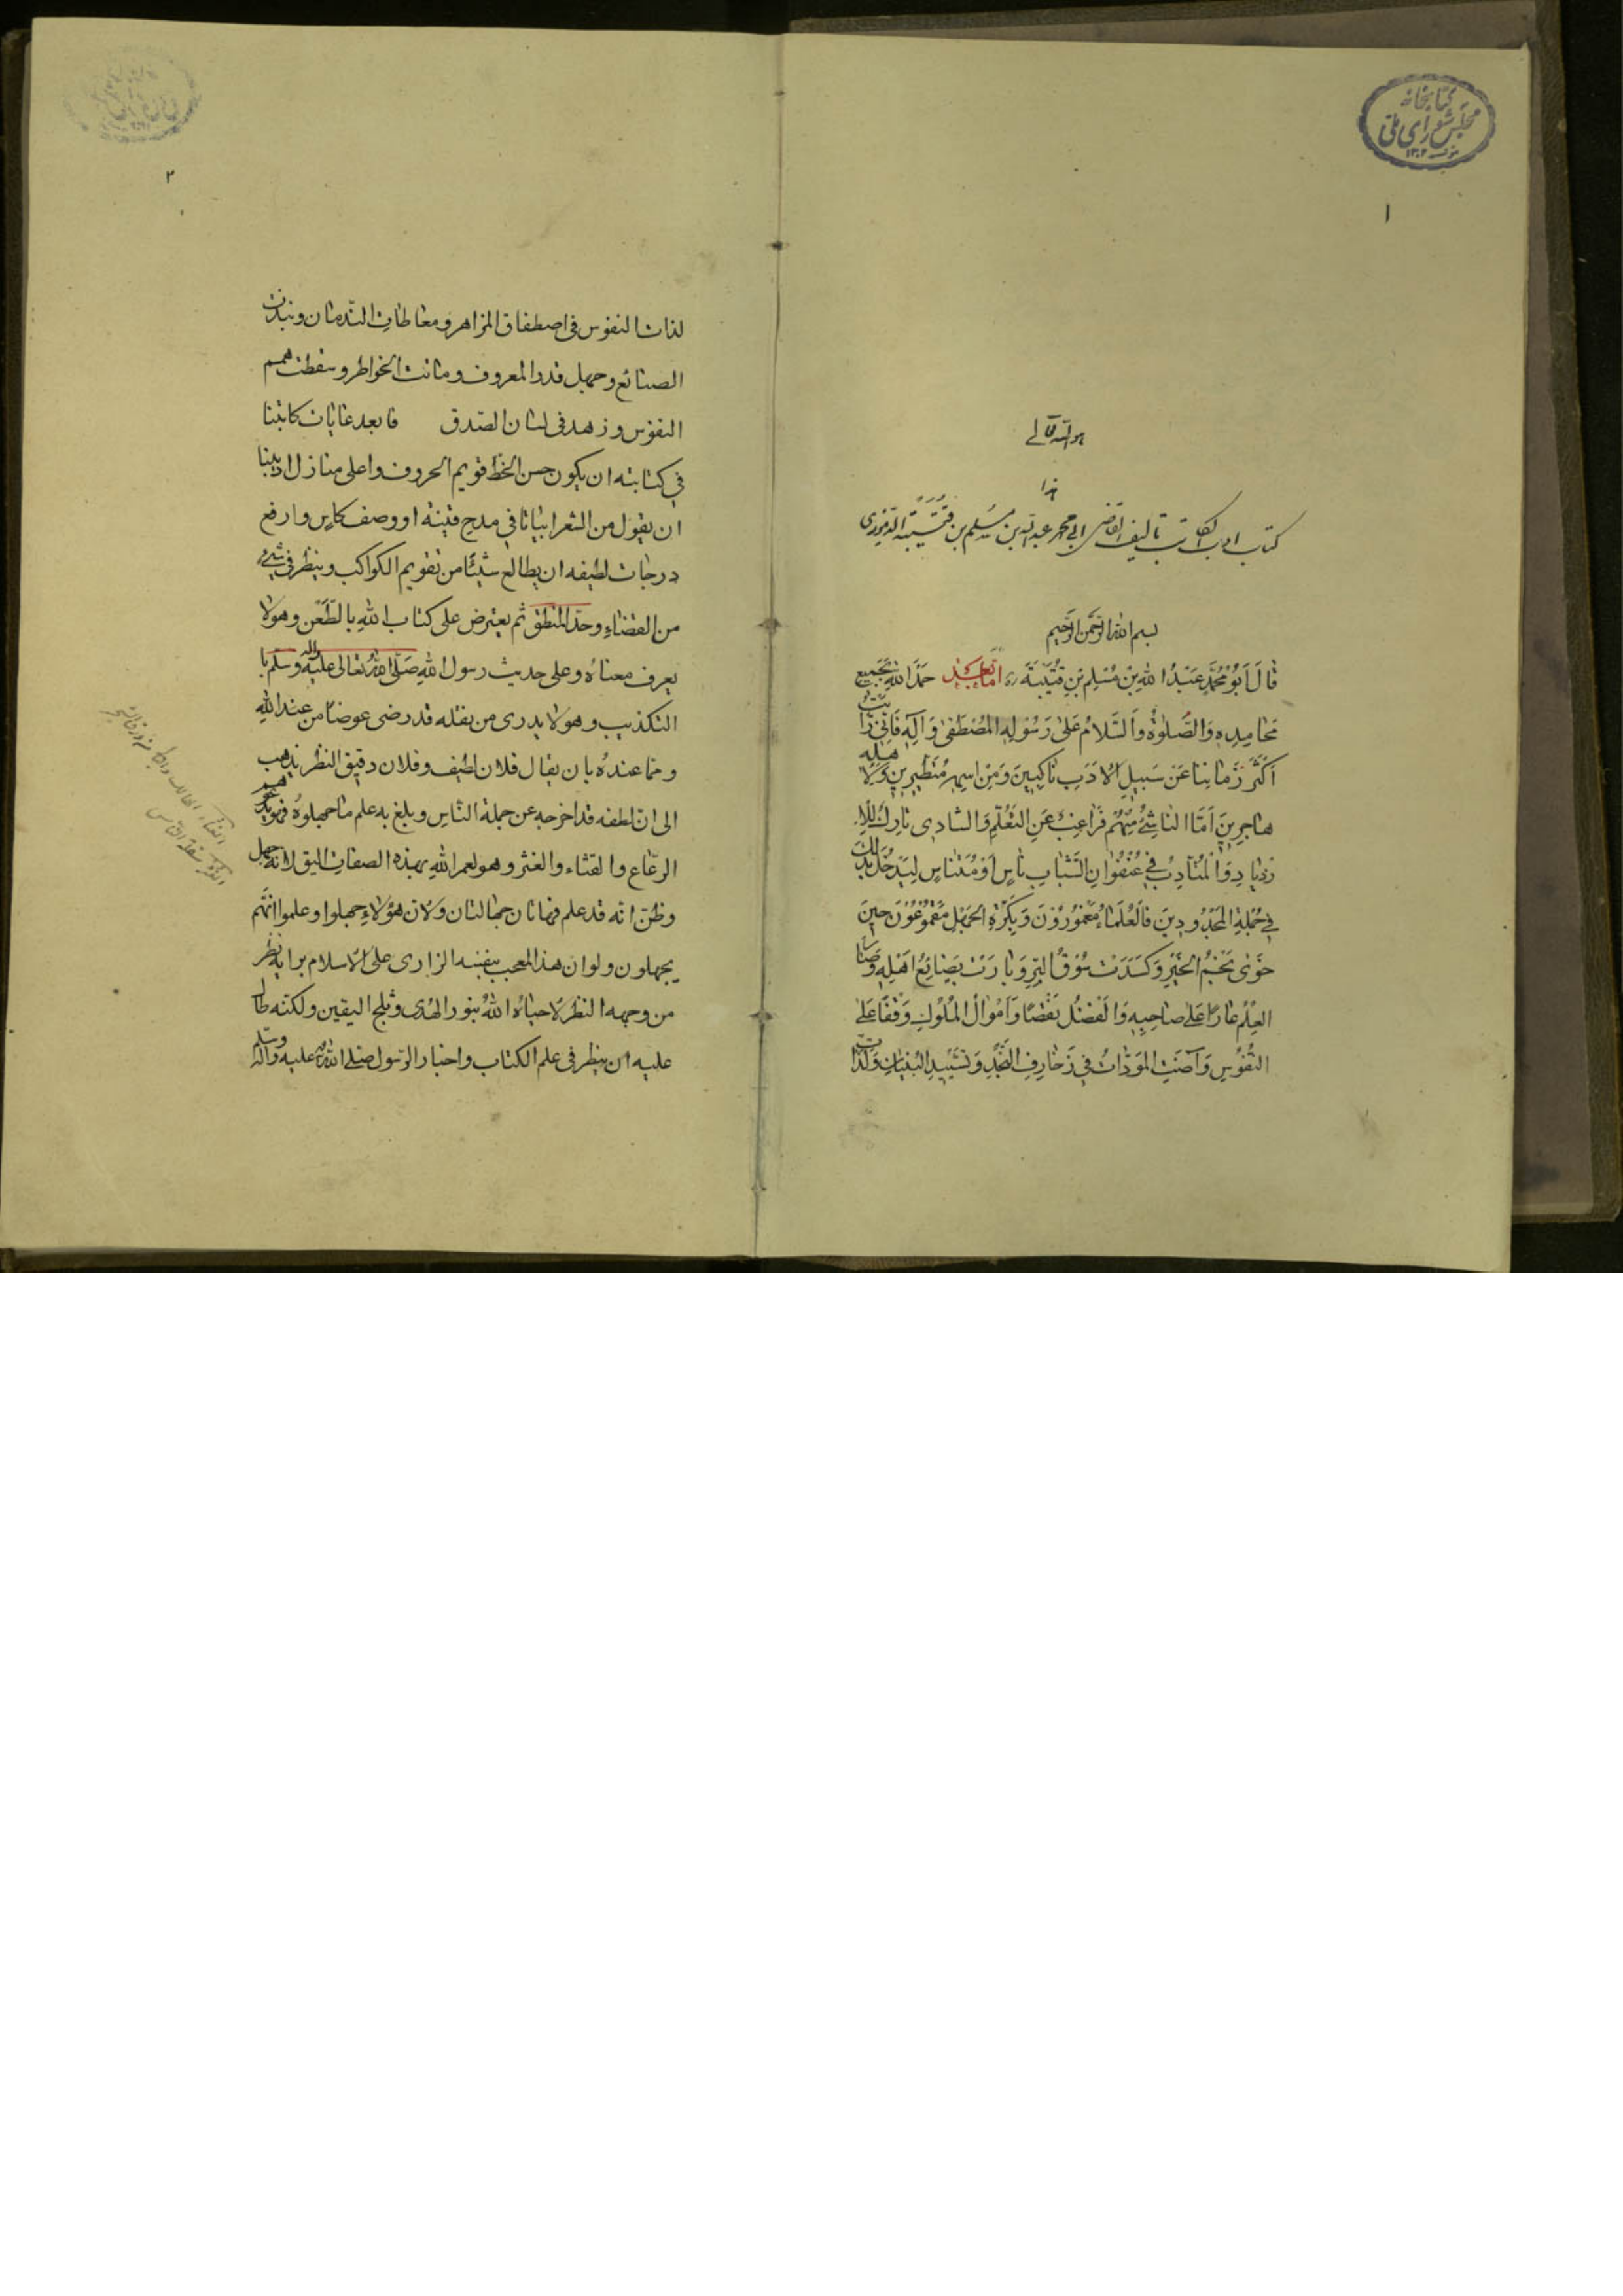 کتابخانه
مجلس شورای ملی
۱۳۰۲
۱
هو الله تعالی
هذا
کتاب ادب الکاتب تالیف القاضی ابی محمد عبدالله بن مسلم بن قُتَیْبَة الدینوری
بسم الله الرحمن الرحیم
قَالَ اَبُو مُحَمَّدٍ عَبْدُ اللهِ بْنُ مُسْلِمِ بْنِ قُتَيْبَةَ ره اَمّا بَعْد حَمْدَ اللهِ بِجَمِيعِ
مَحَامِدِهِ وَالصَّلوةُ وَالسَّلَامُ عَلى رَسُولِهِ المُصْطَفى وَآلِهِ فَاِنّي رَاَيْتُ
اَكْثَرَ زَمَانِنَا عَنْ سَبِيلِ الاَدَبِ نَاكِبِينَ وَمِنْ اسمِهِ مُتَطَيِّرِينَ وَلِاَهْلِهِ
هاجِرِينَ اَمَّا النَاشِئُ مِنْهُمْ فَرَاغِبٌ عَنِ التَعَلُّمِ وَالشادِى تارِكٌ لِلاِ
زدِيادِ وَالْمُتَأدِبُ فِي عُنْفُوَانِ الشَّبابِ نَاسٍ اَوْ مُتَنَاسٍ لِيَدْخُلَ بِذَلِكَ
فِي جُمْلَةِ المَجْدُودِينَ فَالعُلَمَاءُ مَغْمُورُونَ وَبِكَرَّةِ الجَهْلِ مَقْمُوعُونَ حِينَ
خَوَى نَجْمُ الخَيْرِ وَكَسَدَتْ سُوقُ البِرِّ وَبَارَتْ بَضَائِعُ اَهْلِهِ وَصَارَ
العِلْمُ عَارًا عَلى صَاحِبِهِ وَالفَضْلُ نَقْصًا وَاَمْوَالُ المُلُوكِ وَقْفًا عَلى
النُّفُوسِ وَآضَتِ المَوَدَّاتُ فِي زَخَارِفِ النَّجْدِ وَتَشْيِيدِ البُنْيَانِ وَلَذَّاتِ
۲
لذات النفوس فى اصطفاق المزاهر ومعاطات الندمان ونبذت
الصنائع وجهل قدر المعروف وماتت الخواطر وسقطت همم
النفوس وزهد فى لسان الصدق فابعد غايات كاتبنا
فى كتابته ان يكون حسن الخط قويم الحروف واعلى منازل اديبنا
ان يقول من الشعر ابياتا فى مدح قينة او وصف كاس وارفع
درجات لطيفه ان يطالع شيئًا من تقويم الكواكب وينظر فى شىء
من القضاء وحدّ المنطق ثم يعترض على كتاب الله بالطعن وهو لا
يعرف معناه وعلى حديث رسول الله صلّى الله تعالى عليه وآله وسلم با
التكذيب وهو لا يدرى من نقله قد رضى عوضًا من عند الله
ومما عنده بان يقال فلان لطيف وفلان دقيق النظر يذهب
الى ان لطفه قد اخرجه عن جملة الناس وبلغ به علم ما جهلوه فهو يدعوهم
الرعاع والغثاء والغثر وهو لعمر الله بهذه الصفات اليق لانه جهل
وظنّ انه قد علم فهاتان جهالتان ولان هؤلاء جهلوا وعلموا انّهم
يجهلون ولو ان هذا المعجب بنفسه الزارى على الاسلام برايه نظر
من وجهه النظر لاحياه الله بنور الهدى وثلج اليقين ولكنه طال
عليه ان ينظر فى علم الكتاب واخبار الرسول صلى الله عليه وآله وسلّم